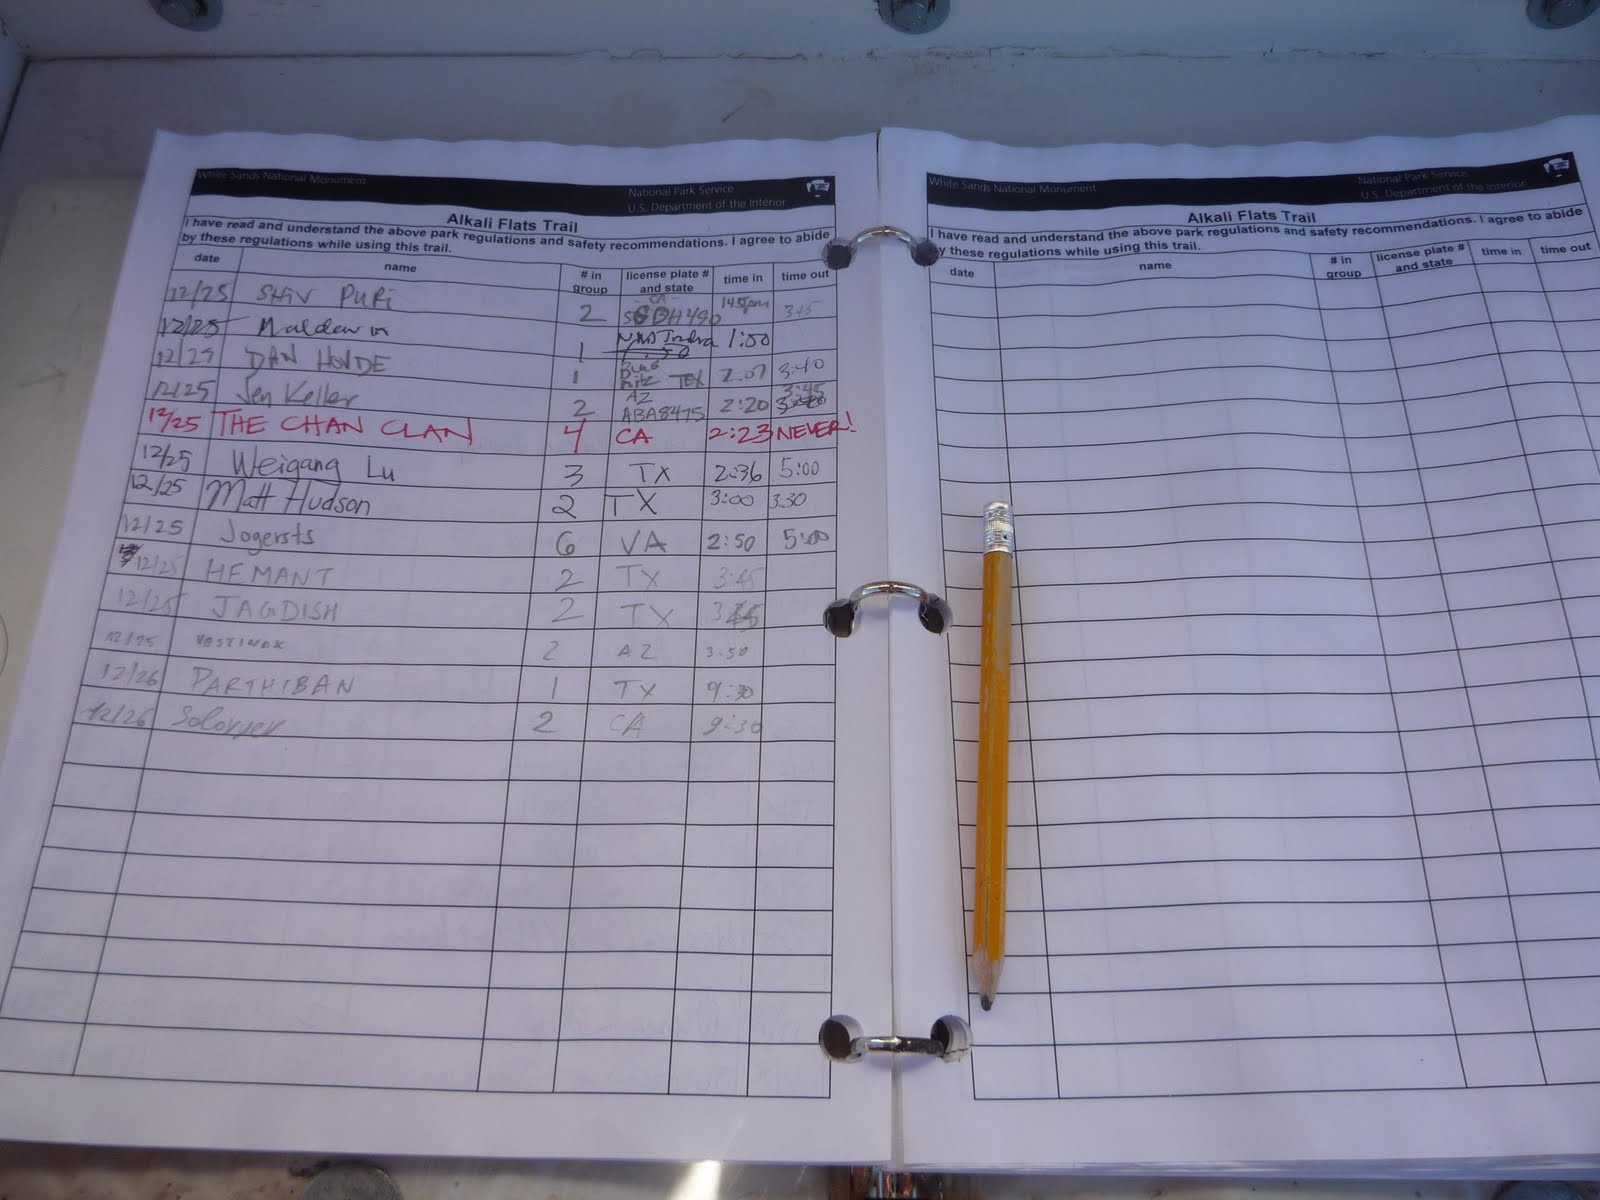 White Sands National Monument
National Park Service
U.S. Department of the Interior
Alkali Flats Trail
I have read and understand the above park regulations and safety recommendations. I agree to abide
by these regulations while using this trail.
date name # in group license plate # and state time in time out
12/25 SHIV PURI 2 CA 3:45
12/25 1 1:50
12/25 DAN HOVDE 1 TEX 2:07 3:40
12/25 Jen Keller 2 AZ ABA8475 2:20 3:45
12/25 THE CHAN CLAN 4 CA 2:23 NEVER!
12/25 Weigang Lu 3 TX 2:36 5:00
12/25 Matt Hudson 2 TX 3:00 3:30
12/25 Jogersts 6 VA 2:50 5:00
12/25 HEMANT 2 TX 3:45
12/25 JAGDISH 2 TX
12/25 2 AZ 3:50
12/26 PARTHIBAN 1 TX 9:30
12/26 2 CA 9:30
White Sands National Monument
National Park Service
U.S. Department of the Interior
Alkali Flats Trail
I have read and understand the above park regulations and safety recommendations. I agree to abide
by these regulations while using this trail.
date name # in group license plate # and state time in time out